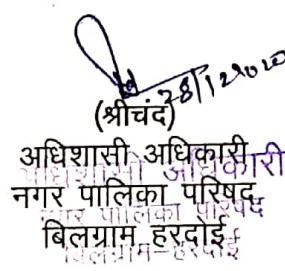 28/1/2020
(श्रीचंद)
अधिशासी अधिकारी
नगर पालिका परिषद
बिलग्राम हरदोई
अधिशासी अधिकारी
नगर पालिका परिषद
बिलग्राम-हरदोई